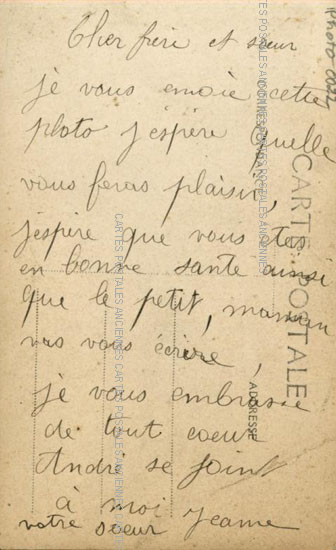 Cher frère et sœur
je vous envoie cette
photo j'espère quelle
vous feras plaisir,
j'espère que vous tes
en bonne santé ainsi
que le petit, maman
vas vous écrire,
je vous embrasse
de tout coeur
André se joint
à moi
votre soeur Jeanne
CARTE POSTALE
ADRESSE
CARTES POSTALES ANCIENNES CARTES POSTALES ANCIENNES
CARTES POSTALES ANCIENNES CARTES POSTALES ANCIENNES